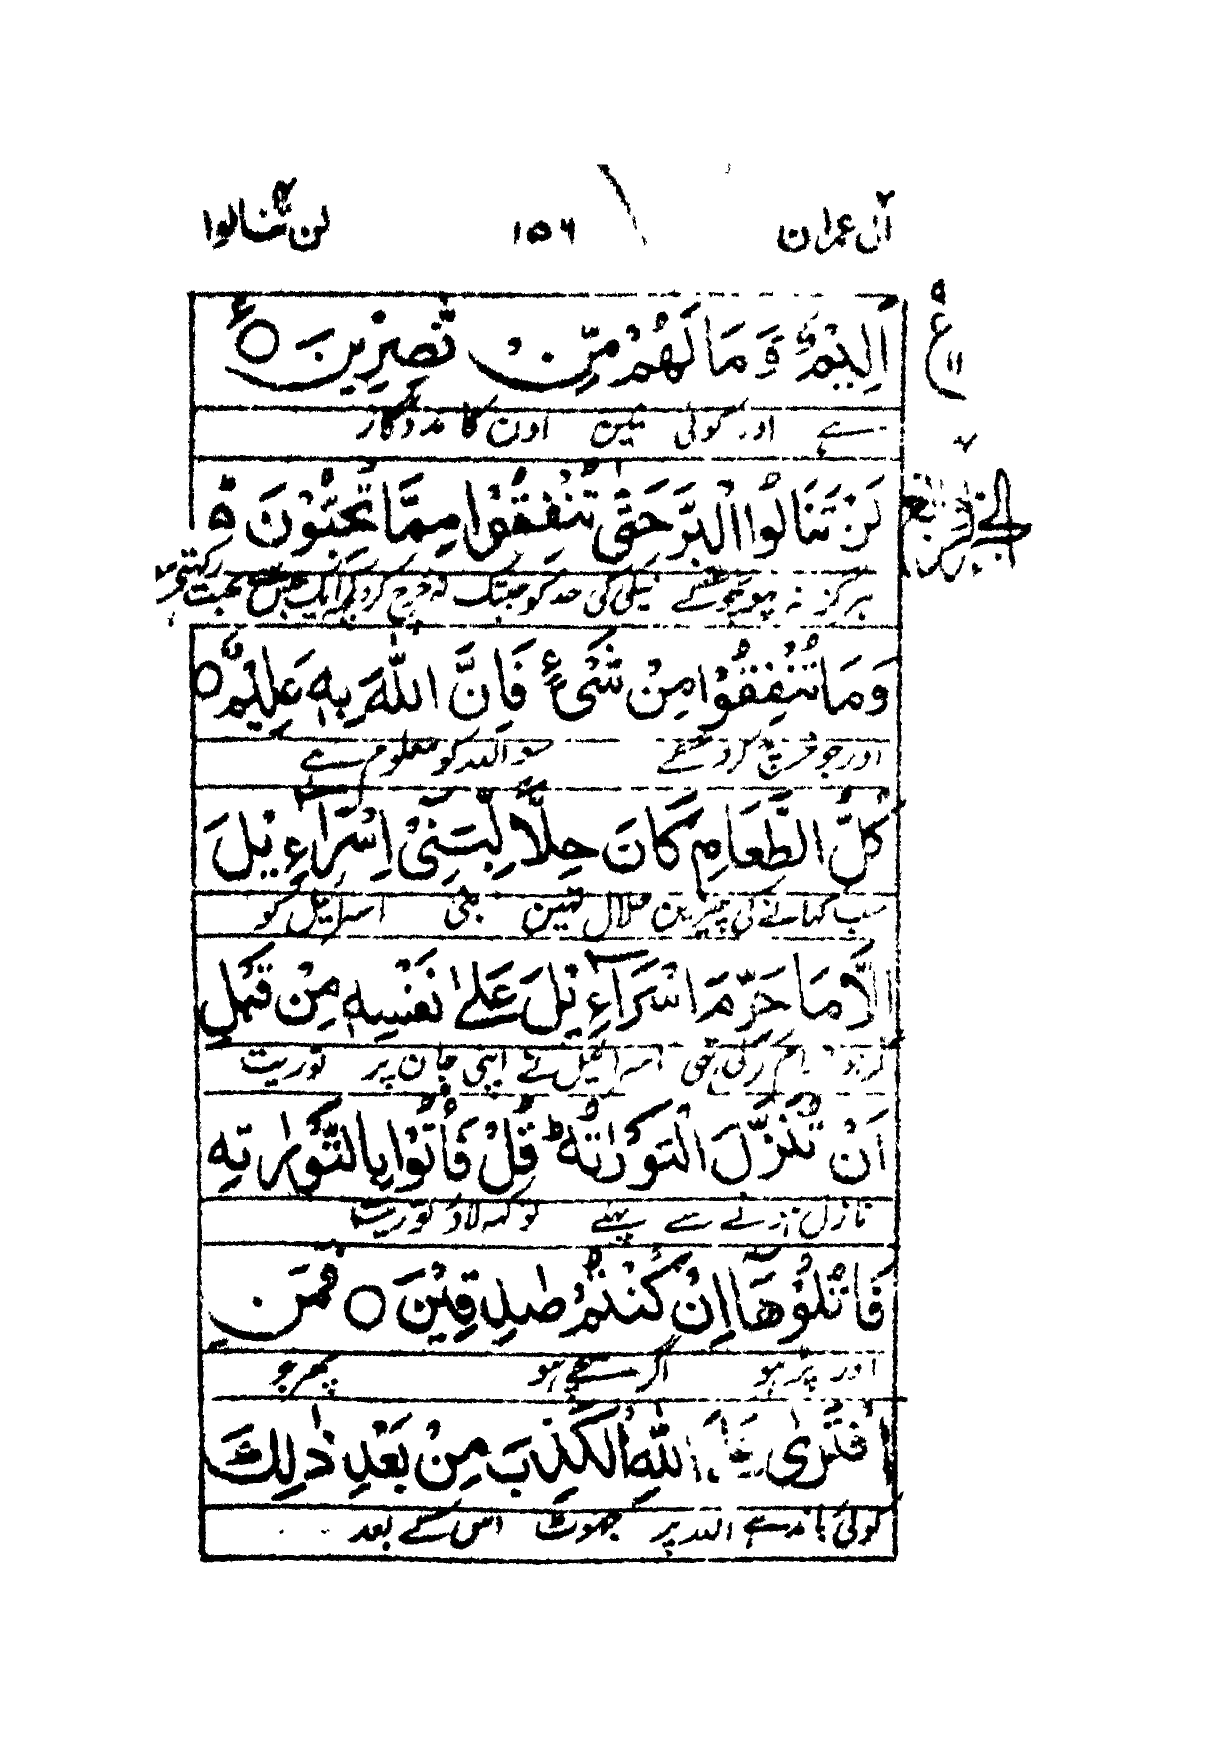 آل عمران ۱۵۶ لن تنالوا
اَلِيْمٌ وَّ مَا لَهُمْ مِّنْ نّٰصِرِيْنَ ○ ع
ہے اور کوئی نہین اون کا مددگار
لَنْ تَنَالُوا الْبِرَّ حَتّٰى تُنْفِقُوْا مِمَّا تُحِبُّوْنَ ۥ
ہرگز نہ پہونچوگے نیکی کی حد کو جبتک نہ خرچ کرو کچہ ایک جس محبت رکھتے ہو
وَمَا تُنْفِقُوْا مِنْ شَىْءٍ فَاِنَّ اللّٰهَ بِهٖ عَلِيْمٌ ○
اور جو خرچ کروگے سو اللہ کو معلوم ہے
كُلُّ الطَّعَامِ كَانَ حِلًّا لِّبَنِىْٓ اِسْرَآءِيْلَ
سب کہانے کی چیزین حلال تہین بنی اسرائیل کو
اِلَّا مَا حَرَّمَ اِسْرَآءِيْلُ عَلٰى نَفْسِهٖ مِنْ قَبْلِ
اسرائیل نے اپنی جان پر توریت
اَنْ تُنَزَّلَ التَّوْرٰىةُ ط قُلْ فَاْتُوْا بِالتَّوْرٰىةِ
نازل ہونے سے پہلے تو کہہ لاؤ توریت
فَاتْلُوْهَآ اِنْ كُنْتُمْ صٰدِقِيْنَ ○ فَمَنِ
اور پڑہو اگر سچے ہو پھر جو
افْتَرٰى عَلَى اللّٰهِ الْكَذِبَ مِنْۢ بَعْدِ ذٰلِكَ
کوئی باندہے اللہ پر جھوٹ اس کے بعد
ع
۱۱
الجزء الرابع